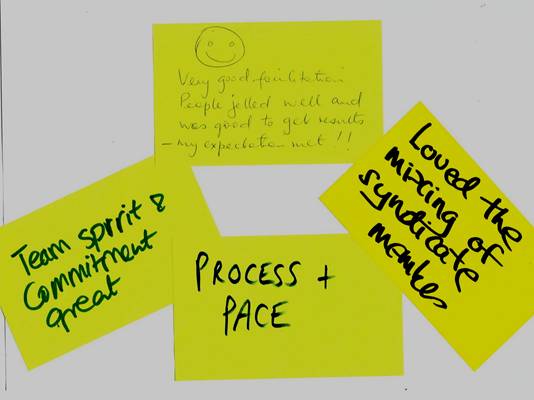 Very good facilitation
People jelled well and
was good to get results
- my expectation met !!
Team spirit &
Commitment
great
PROCESS +
PACE
Loved the
mixing of
syndicate
members